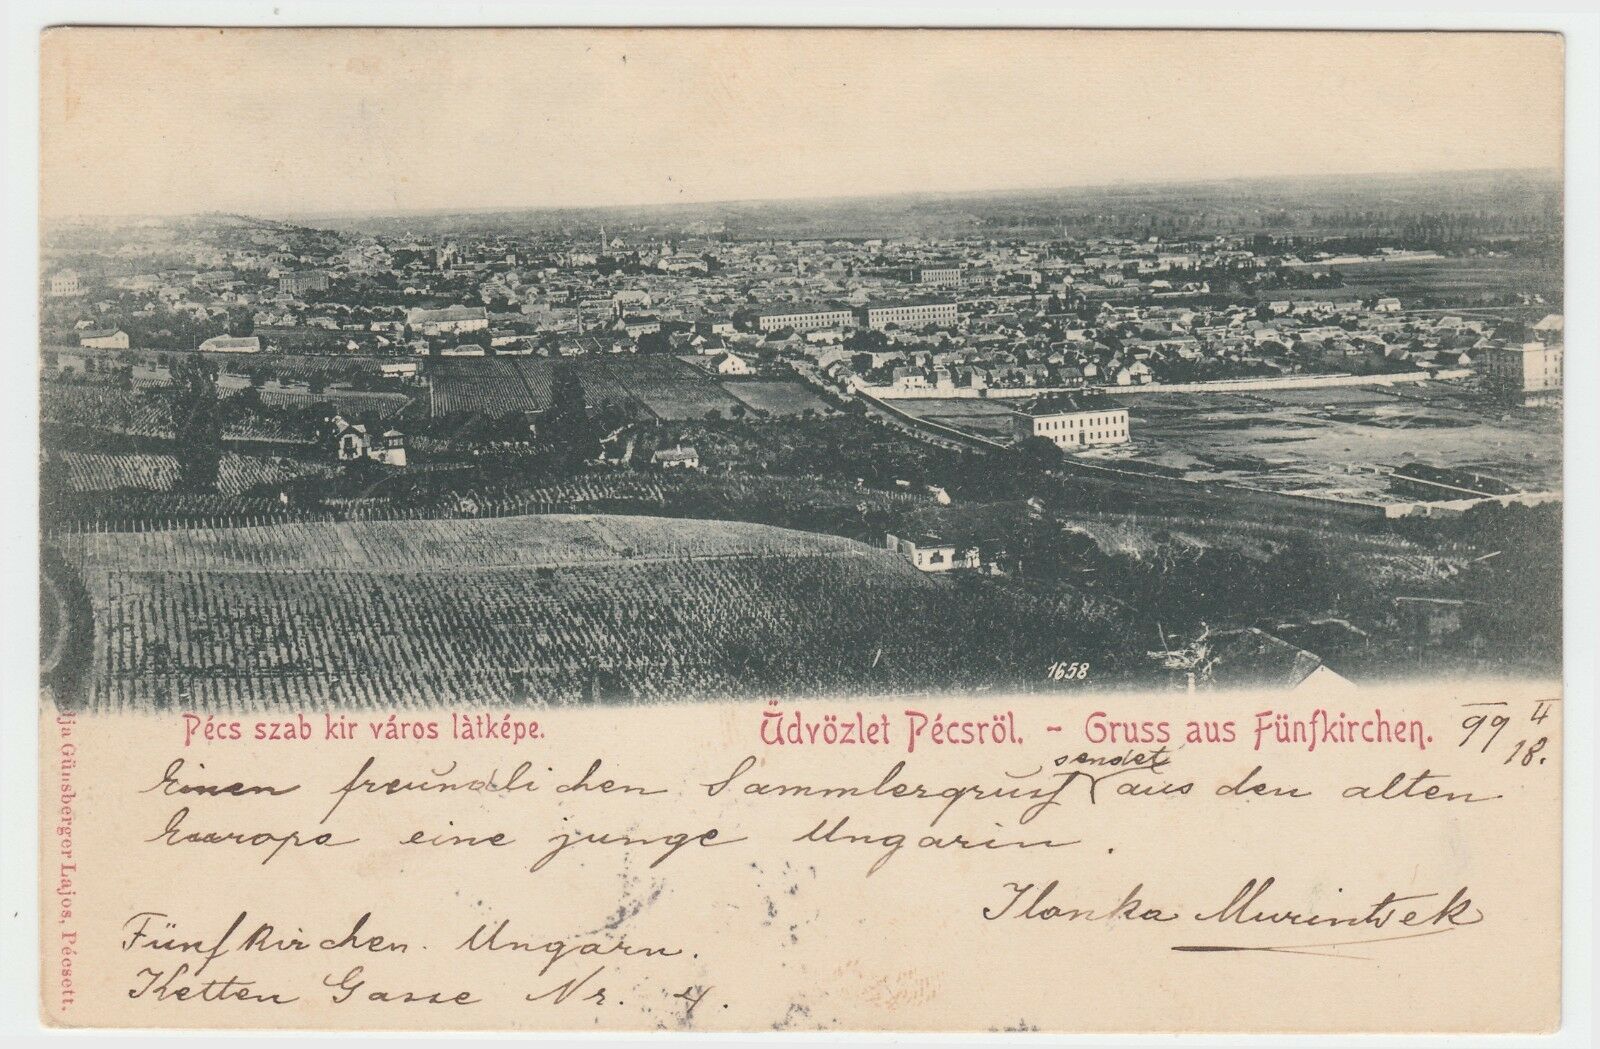 1658
Pécs szab kir város làtképe.
Üdvözlet Pécsröl. - Gruss aus Fünfkirchen.
99 II/18.
Einen freundlichen Sammlergruß sendet aus den alten
Europa eine junge Ungarin.
Ilonka
Fünfkirchen. Ungarn.
Ketten Gasse Nr. 4.
Günsberger Lajos, Pécsett.